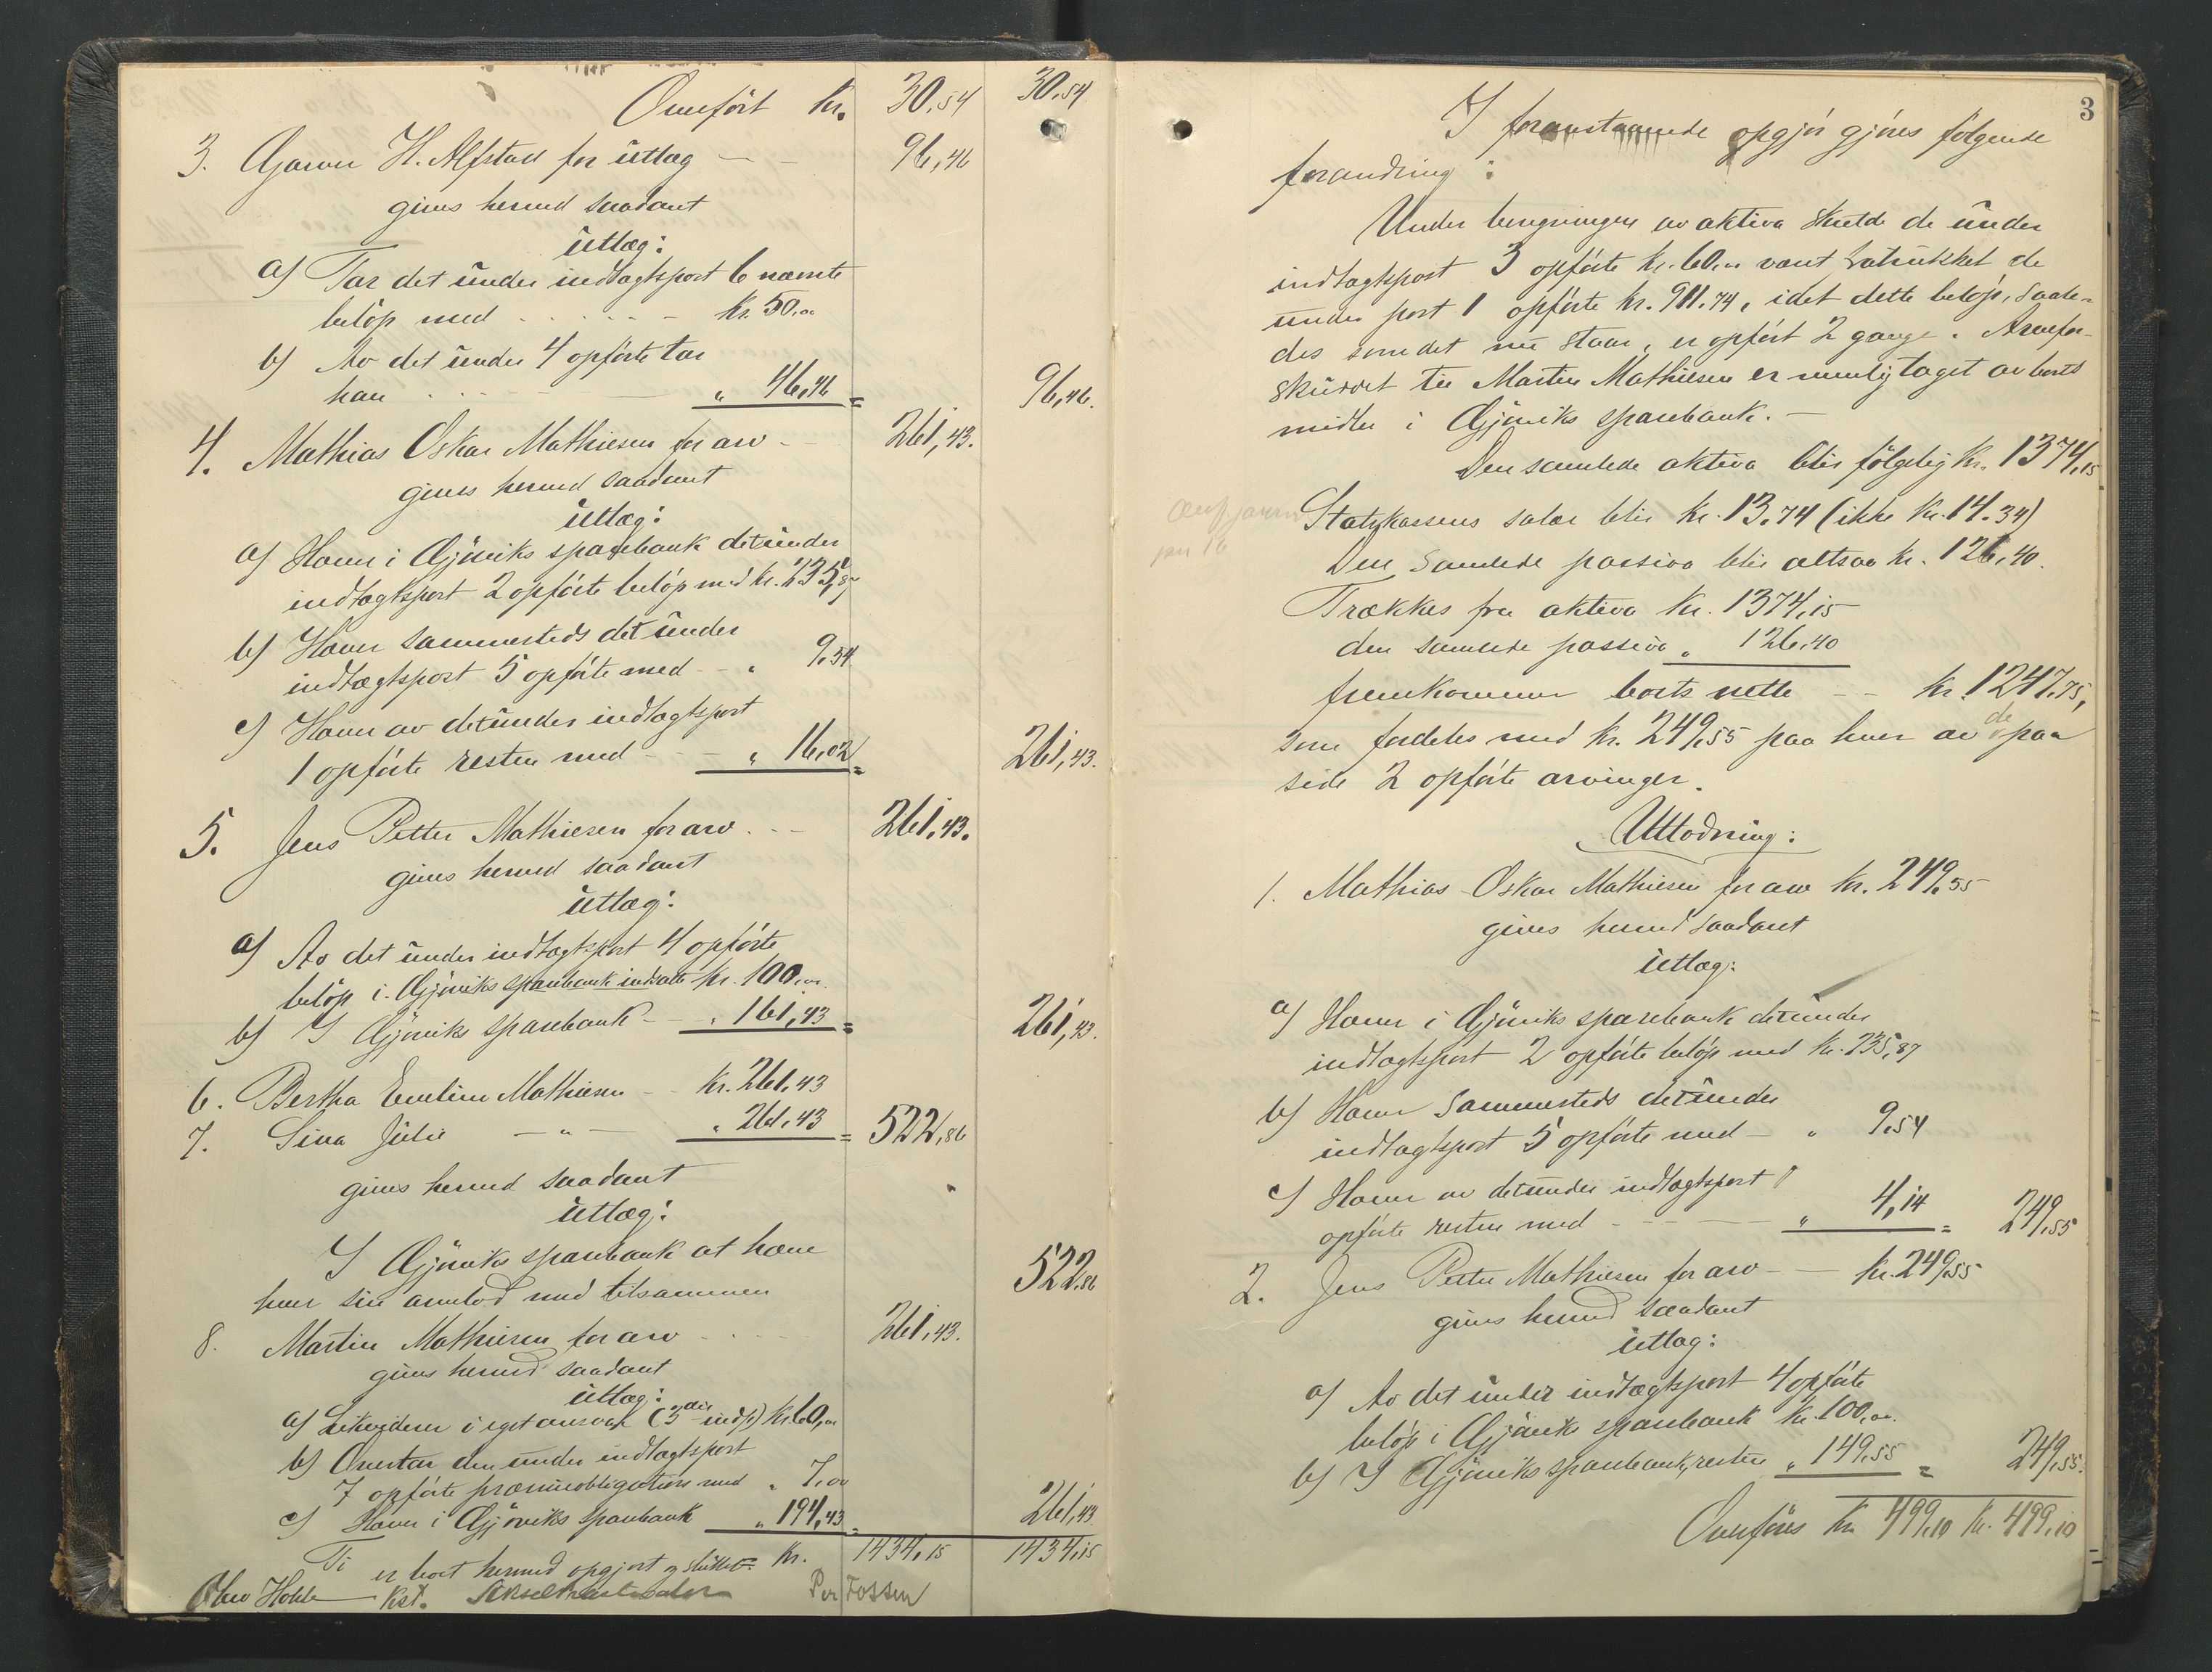 Overført Kr. 30,54 30,54
3. Gjøvik H. Alfstad for utlæg - - 96,46
gives herved saadant
utlæg:
a) Tar det under indtægtspost 6 nævnte
beløp med . . . . . - kr. 50,00
b) Av det under 4 opførte tar
han . . . - „ 46,46 = 96,46.
4. Mathias Oskar Mathiesen for arv - 261,43.
gives herved saadant
utlæg:
a) Hæver i Gjøviks sparebank det under
indtægtspost 2 opførte beløp med kr. 235,87
b) Hæver sammesteds det under
indtægtspost 5 opførte med - „ 9,54
c) Hæver av det under indtægtspost
1 opførte resten med - - „ 16,02 = 261,43.
5. Jens Petter Mathiesen for arv . . - 261,43.
gives herved saadant
utlæg:
a) Av det under indtægtspost 4 opførte
beløp i Gjøviks sparebank indsatte kr. 100,00.
b) I Gjøviks sparebank - „ 161,43 = 261,43.
6. Bertha Eveline Mathiesen - kr. 261,43
7. Sina Julie - „ - „ 261,43 = 522,86
gives herved saadant
utlæg:
I Gjøviks sparebank at hæve
hver sin arvelod med tilsammen 522,86
8. Martin Mathiesen for arv . . - 261,43.
gives herved saadant
utlæg:
a) Likviderer i eget ansvar (3die indt) kr. 60,00
b) Overtar den under indtægtspost
7 opførte præmieobligation med „ 7,00
c) Hæver i Gjøviks sparebank „ 194,43 = 261,43
Ti er boet herved opgjort og sluttet. Kr. 1434,15 1434,15
kst. Per Fossen
3
I foranstaaende opgjør gjøres følgende
forandring:
Under beregningen av aktiva skulde de under
indtægtspost 3 opførte kr. 60,00 været fratrukket de
under post 1 opførte kr. 911.74, idet dette beløp, saale-
des som det nu staar, er opført 2 gange. Arvefor-
skuddet til Martin Mathiesen er nemlig taget av boets
midler i Gjøviks sparebank. -
Den samlede aktiva blir følgelig kr. 1374,15
Statskassens salær blir kr. 13.74 (ikke kr. 14.34)
Den samlede passiva blir altsaa kr. 126,40.
Trækkes fra aktiva kr. 1374,15
den samlede passiva „ 126,40
fremkommer boets netto - - kr. 1247.75,
som fordeles med kr. 249,55 paa hver av de paa
side 2 opførte arvinger.
Utlodning:
1. Mathias Oskar Mathiesen for arv kr. 249,55
gives herved saadant
utlæg:
a) Hæver i Gjøviks sparebank det under
indtægtspost 2 opførte beløp med kr. 235,87
b) Hæver sammesteds det under
indtægtspost 5 opførte med - „ 9,54
c) Hæver av det under indtægtspost 1
opførte resten med - - - „ 4,14 = 249,55
2. Jens Petter Mathiesen for arv - - kr. 249,55
gives herved saadant
utlæg:
a) Av det under indtægtspost 4 opførte
beløp i Gjøviks sparebank kr. 100,00.
b) I Gjøviks sparebank, resten „ 149,55 = 249,55.
Overføres kr. 499,10 kr. 499,10